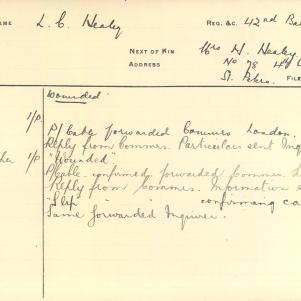 NAME L. C. Healey REG. &C. 42nd Ba
NEXT OF KIN Mrs H. Healey
ADDRESS No 78 4th
St. Peters. FILE
Wounded
1/p P/Cable forwarded Commrs London.
Reply from Commrs. Particulars sent Inq
1/p "Wounded"
P/cable confirmed forwarded Commrs. L
Reply from Commrs. Information s
"Slip confirming ca
Same forwarded Inquirer.